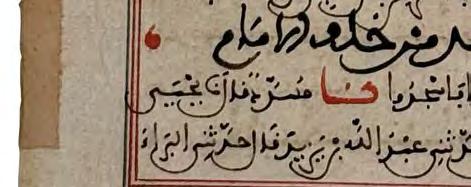 من خلف الامام
فاسجدوا نا مسدد قال نا يحيى
حدثني عبد الله بن يزيد قال حدثني البراء